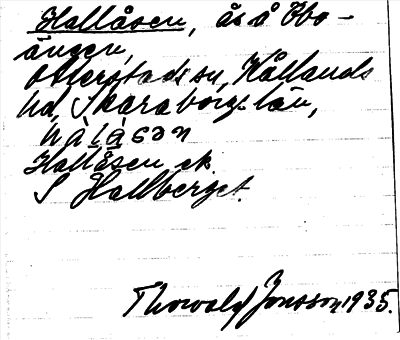 Hallåsen, ås å Åbo-
ängen,
Otterstads sn, Kållands
hd, Skaraborgs län,
Hallåsen ek.
S Hallberget.
Thorvald Jonsson 1935.